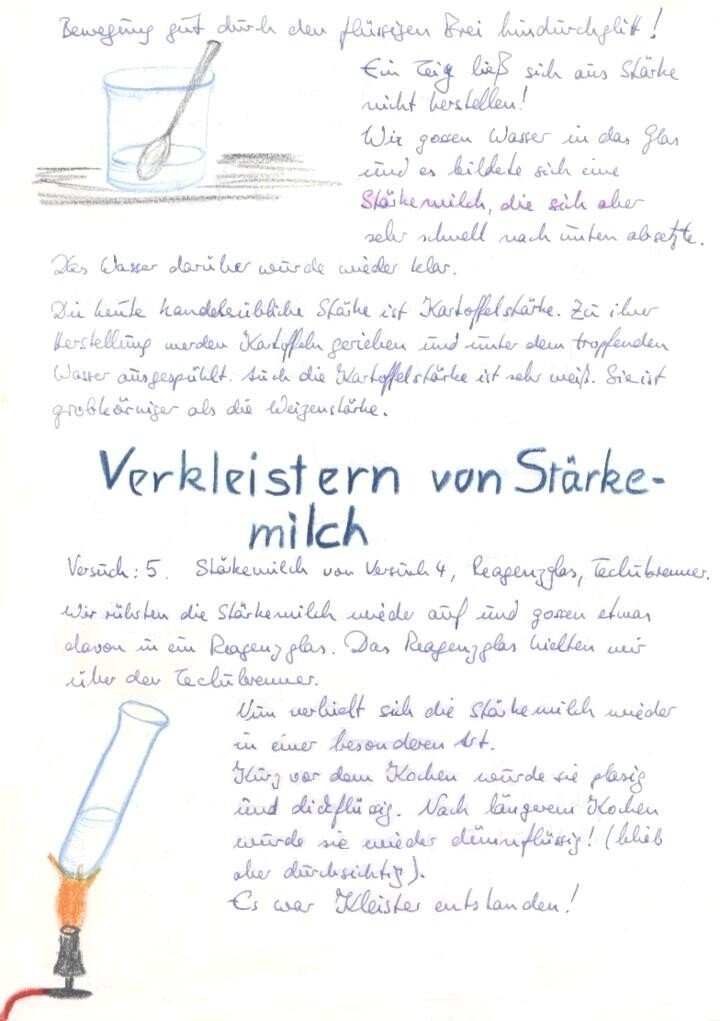 Bewegung gut durch den flüssigen Brei hindurchglitt!
Ein Teig ließ sich aus Stärke
nicht herstellen!
Wir gossen Wasser in das Glas
und es bildete sich eine
Stärkemilch, die sich aber
sehr schnell nach unten absetzte.
Das Wasser darüber wurde wieder klar.
Die heute handelsübliche Stärke ist Kartoffelstärke. Zu ihrer
Herstellung werden Kartoffeln gerieben und unter dem tropfenden
Wasser ausgespühlt. Auch die Kartoffelstärke ist sehr weiß. Sie ist
grobkörniger als die Weizenstärke.
Verkleistern von Stärke-
milch
Versuch: 5. Stärkemilch von Versuch 4, Reagenzglas, Teclubrenner.
Wir rührten die Stärkemilch wieder auf und gossen etwas
davon in ein Reagenzglas. Das Reagenzglas hielten wir
über den Teclubrenner.
Nun verhielt sich die Stärkemilch wieder
in einer besonderen Art.
Kurz vor dem Kochen wurde sie glasig
und dickflüssig. Nach längerem Kochen
wurde sie wieder dünnflüssig! (blieb
aber durchsichtig).
Es war Kleister entstanden!